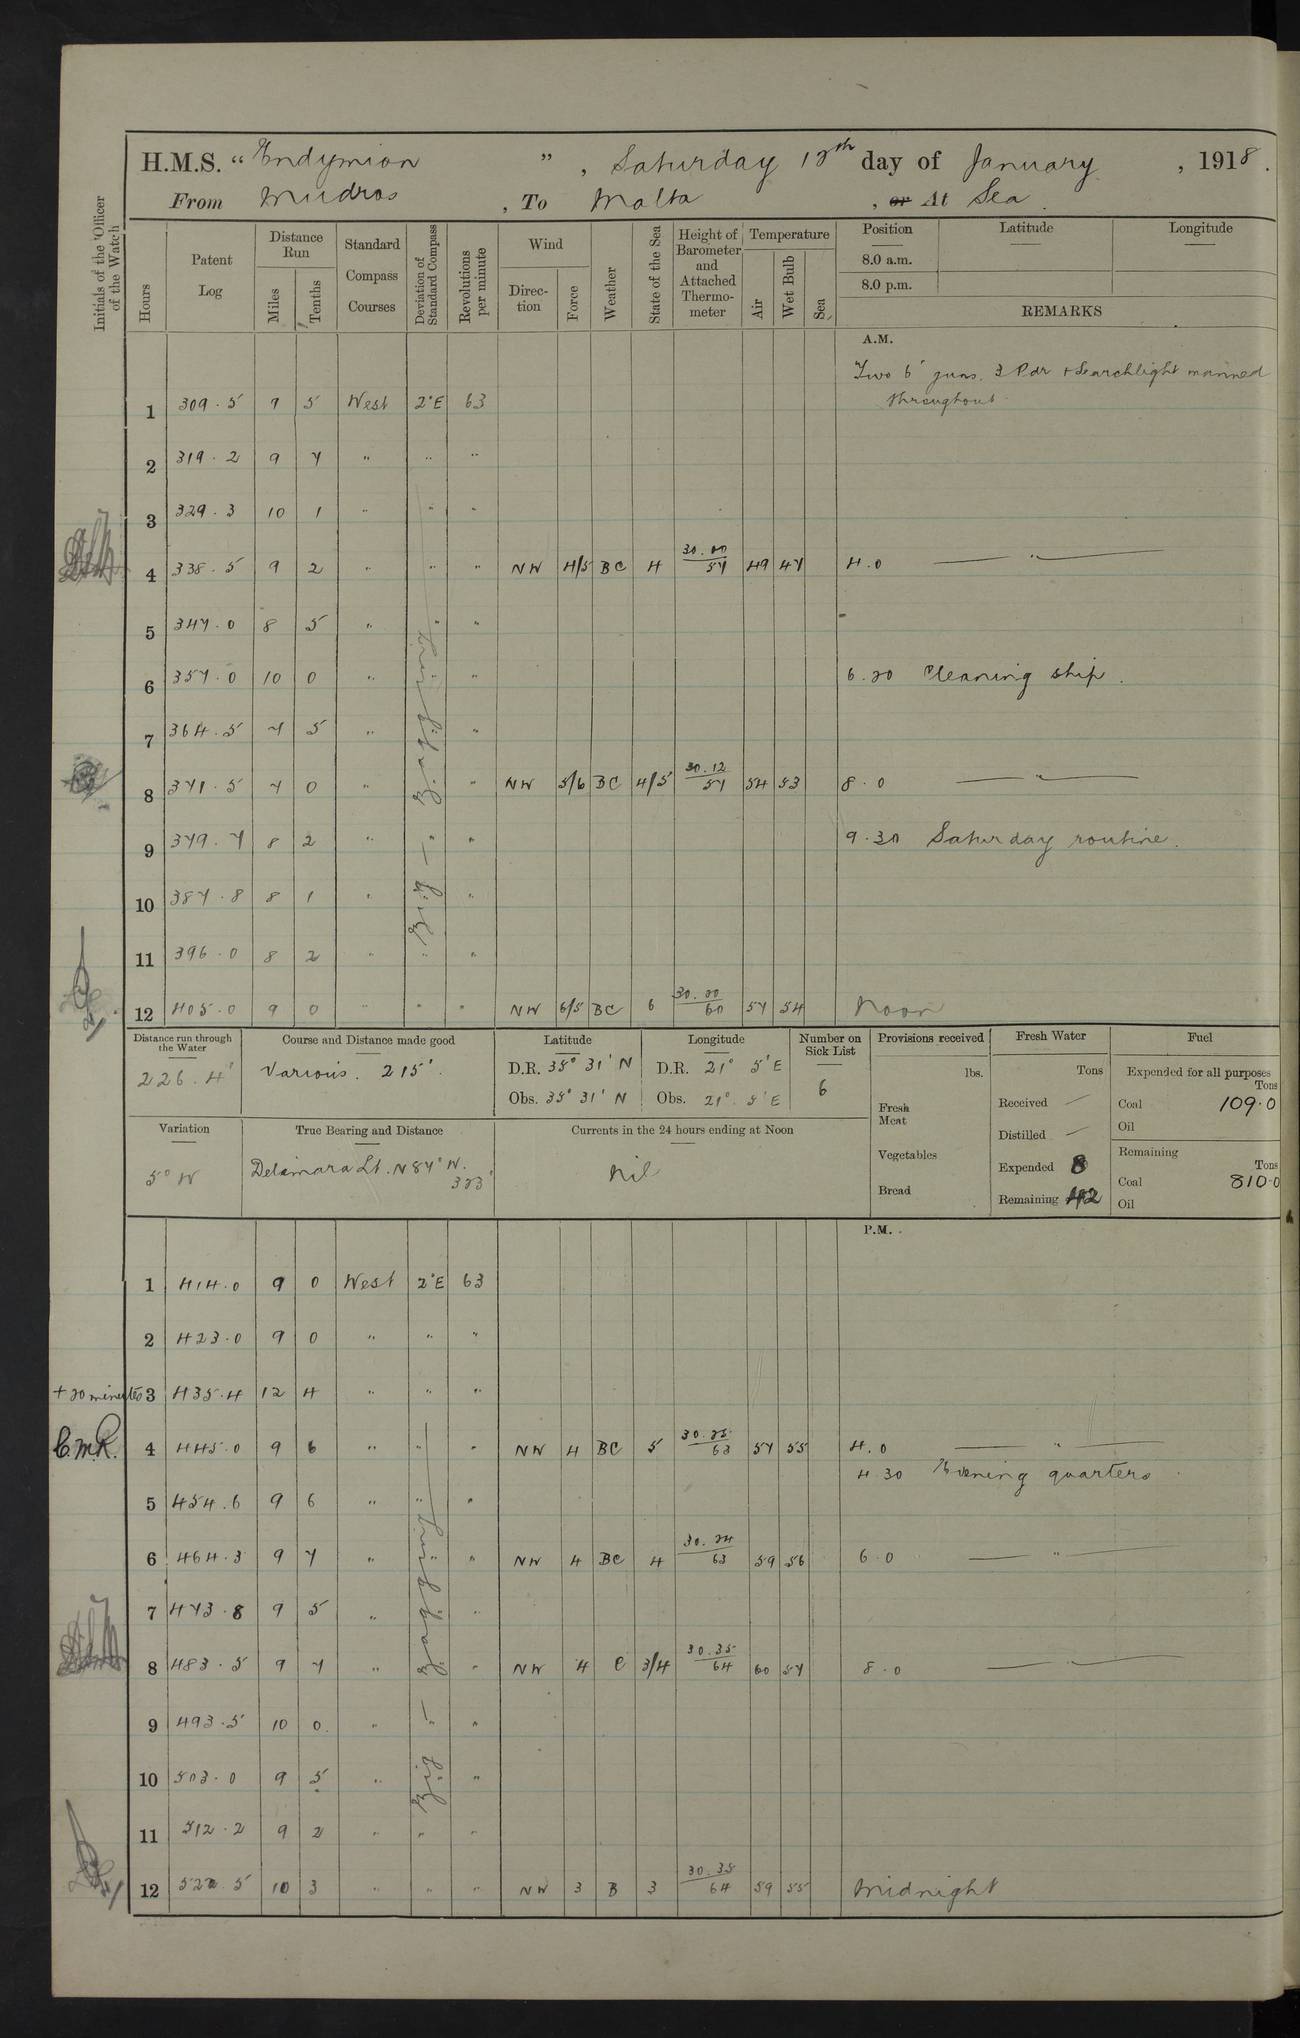 H.M.S. “Endymion”, Saturday 12th day of January, 1918.
From Mudros, To Malta, or At Sea.
Initials of the Officer of the Watch
Hours
Patent Log
Distance Run
Miles
Tenths
Standard Compass Courses
Deviation of Standard Compass
Revolutions per minute
Wind
Direction
Force
Weather
State of the Sea
Height of Barometer and Attached Thermometer
Temperature
Air
Wet Bulb
Sea
Position
8.0 a.m.
8.0 p.m.
Latitude
Longitude
REMARKS
A.M.
Two 6" guns. 3 Pdr + Searchlight manned
throughout
1 309.5 9 5 West 2°E 63
2 319.2 9 7 " " "
3 329.3 10 1 " " "
4 338.5 9 2 " " " NW 4/5 BC 4 30.00 57 49 47 4.0 — " —
5 347.0 8 5 " " "
6 357.0 10 0 " " " 6.20 Cleaning ship.
7 364.5 7 5 " "
8 371.5 7 0 " " NW 5/6 BC 4/5 30.12 57 54 53 8.0 — " —
9 379.7 8 2 " " " 9.30 Saturday routine.
10 387.8 8 1 " "
11 396.0 8 2 " " "
12 405.0 9 0 " " " NW 6/5 BC 6 30.20 60 57 54 Noon
Zig — Zig zagging
Distance run through the Water
226.4'
Course and Distance made good
Various. 215'.
Latitude
D.R. 35° 31' N
Obs. 35° 31' N
Longitude
D.R. 21° 5' E
Obs. 21° 5' E
Number on Sick List
6
Provisions received
lbs.
Fresh Meat
Vegetables
Bread
Fresh Water
Tons
Received —
Distilled —
Expended 8
Remaining 42
Fuel
Expended for all purposes
Tons
Coal 109.0
Oil
Remaining
Tons
Coal 810.0
Oil
Variation
5° W
True Bearing and Distance
Delimara Lt. N 87° W.
323'
Currents in the 24 hours ending at Noon
Nil
P.M.
1 414.0 9 0 West 2°E 63
2 423.0 9 0 " " "
+20 minutes 3 435.4 12 4 " " "
C.M.R. 4 445.0 9 6 " " " NW 4 BC 5 30.25 63 57 55 4.0 — " —
4.30 Evening quarters.
5 454.6 9 6 " " "
6 464.3 9 7 " " " NW 4 BC 4 30.24 63 59 56 6.0 — " —
7 473.8 9 5 " "
8 483.5 9 7 " " NW 4 C 3/4 30.35 64 60 57 8.0 — " —
9 493.5 10 0 " " "
10 503.0 9 5 " "
11 512.2 9 2 " " "
12 522.5 10 3 " " " NW 3 B 3 30.35 64 59 55 Midnight
Zig — Zagging